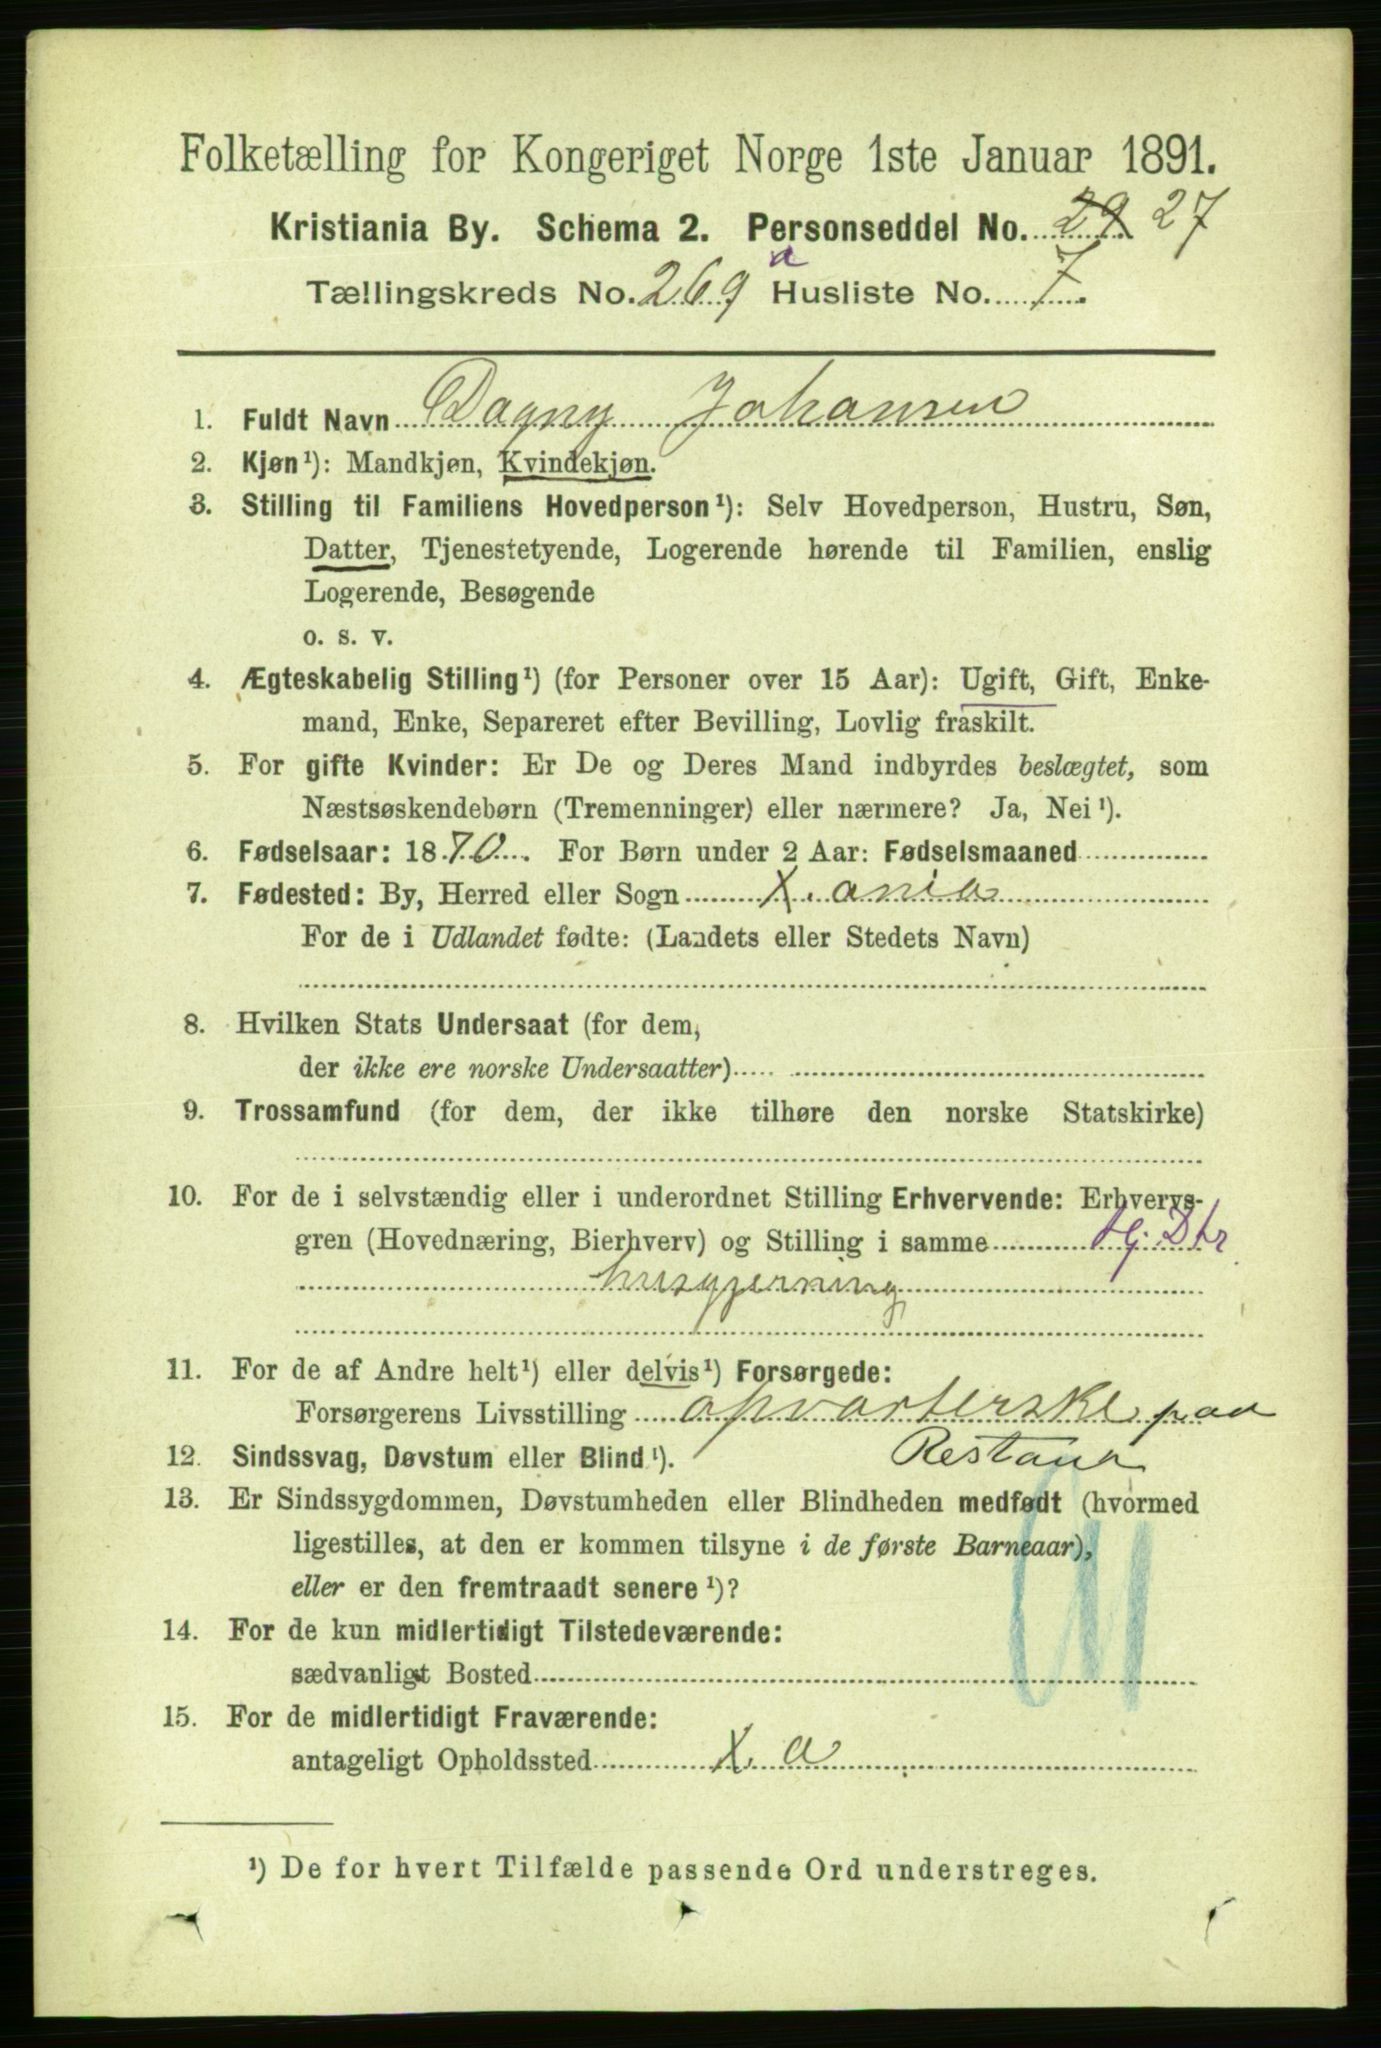 Folketælling for Kongeriget Norge 1ste Januar 1891.
Kristiania By. Schema 2. Personseddel No. 29 27
Tællingskreds No. 269 a Husliste No. 7.
1. Fuldt Navn Dagny Johansen
2. Kjøn¹): Mandkjøn, Kvindekjøn.
3. Stilling til Familiens Hovedperson¹): Selv Hovedperson, Hustru, Søn,
Datter, Tjenestetyende, Logerende hørende til Familien, enslig
Logerende, Besøgende
o. s. v.
4. Ægteskabelig Stilling¹) (for Personer over 15 Aar): Ugift, Gift, Enke-
mand, Enke, Separeret efter Bevilling, Lovlig fraskilt.
5. For gifte Kvinder: Er De og Deres Mand indbyrdes beslægtet, som
Næstsøskendebørn (Tremenninger) eller nærmere? Ja, Nei¹).
6. Fødselsaar: 1870. For Børn under 2 Aar: Fødselsmaaned
7. Fødested: By, Herred eller Sogn X.ania
For de i Udlandet fødte: (Landets eller Stedets Navn)
8. Hvilken Stats Undersaat (for dem,
der ikke ere norske Undersaatter)
9. Trossamfund (for dem, der ikke tilhøre den norske Statskirke)
10. For de i selvstændig eller i underordnet Stilling Erhvervende: Erhvervs-
gren (Hovednæring, Bierhverv) og Stilling i samme Hj. Dtr.
husgjerning
11. For de af Andre helt¹) eller delvis¹) Forsørgede:
Forsørgerens Livsstilling opvarterske paa
Restaur
12. Sindssvag, Døvstum eller Blind¹).
13. Er Sindssygdommen, Døvstumheden eller Blindheden medfødt (hvormed
ligestilles, at den er kommen tilsyne i de første Barneaar),
eller er den fremtraadt senere¹)?
14. For de kun midlertidigt Tilstedeværende:
sædvanligt Bosted
15. For de midlertidigt Fraværende:
antageligt Opholdssted X. a
¹) De for hvert Tilfælde passende Ord understreges.